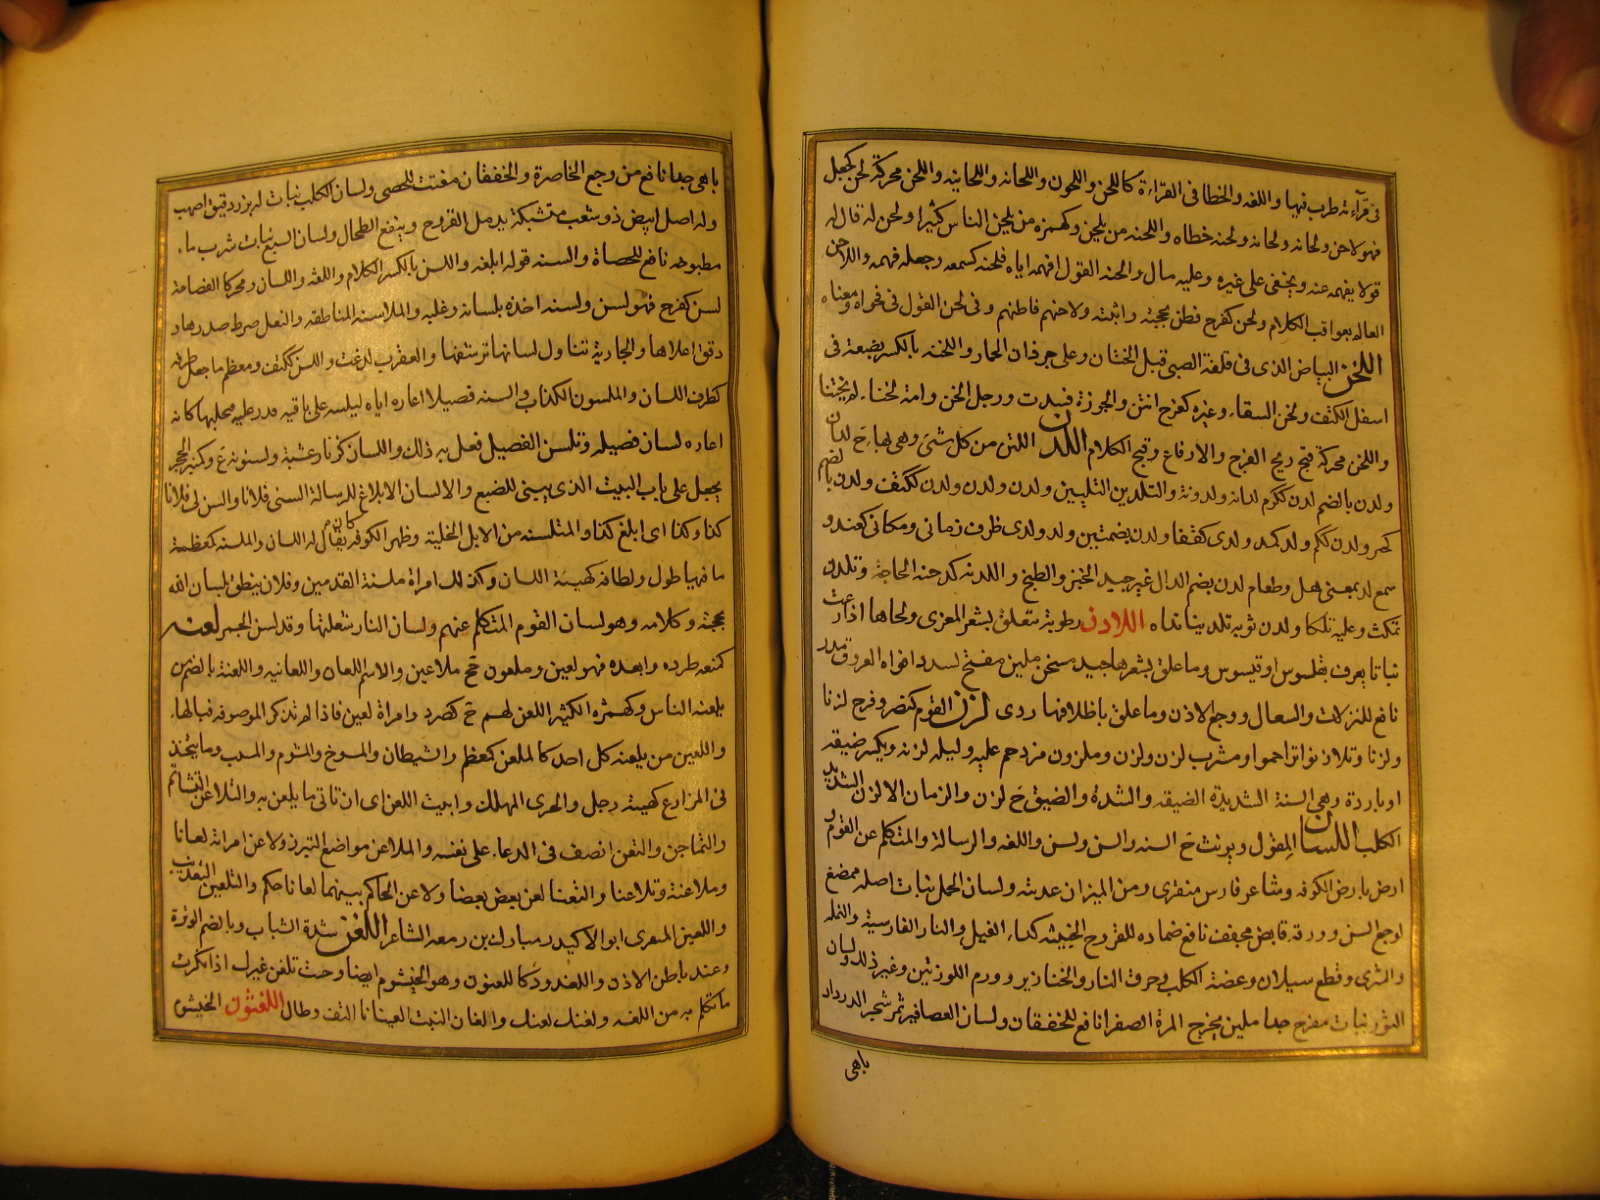 فى قرآءته طرب فيها واللغه والخطا فى القراءة كاللحن واللحون واللحانه واللحانيه واللحن محركة لحن كجعل
فهو لاحن ولحانه ولحنه خطاه واللحنه من يلحن وكهمزه من يلحن الناس كثيرا ولحن له قال له
قولا يفهمه عنه ويخفى على غيره وعليه مال والحنه القول افهمه اياه فلحنه كسمعه وجعله فهمه واللاحن
العالم بعواقب الكلام ولحن كفرح فطن بحجته وانتبه ولاحنهم فاطنهم وفى لحن القول فى فحواه ومعناه
اللخن البياض الذى فى قلفة الصبى قبل الختان وعلى جردان الحمار واللخنه بالكسر بضعة فى
اسفل الكتف ولخن السقاء وغيره كفرح انتن والجوزة فسدت ورجل الخن وامة لخناء لم يختنا
واللخن محركة قبح ريح الفرج والارفاغ وقبح الكلام اللدن اللين من كل شئ وهى بهاء ج لدان
ولدن بالضم لدن ككرم لدانه ولدونة والتلدين التليين ولدن ولدن ولدن ككتف ولدن بالضم
كجير ولدن ككم ولد كمد ولدى كقفا ولدن بضمتين ولد ولدى ظرف زمانى ومكانى كعند و
سمع لد بمعنى هل وطعام لدن بضم الدال غير جيد الخبز والطبخ واللدنه كدجنه الحاجة وتلدن
تمكث وعليه تلكا ولدن ثوبه تلدينا نداه اللاذن رطوبة تتعلق بشعر المعزى ولحاها اذا رعت
نباتا يعرف بقلسوس او قيسوس وما علق بشعرها جيد مسخن ملين مفتح لسدد افواه العروق مدر
نافع للنزلات والسعال ووجع الاذن وما علق باظلافها ردى لزن القوم كنصر وفرح لزنا
ولزنا وتلاذنوا تزاحموا ومشرب لزن ولزن وملزون مزدحم عليه وليله لزنه ويكسر ضيقه
او باردة وهى السنة الشديدة الضيقه والشدة والضيق ج لزن والزمان الالزن الشديد
الكلب اللسان المقول ويونث ج السنه والسن ولسن واللغه والرسالة والمتكلم عن القوم و
ارض بارض الكوفه وشاعر فارس منقرى ومن الميزان عذبته ولسان الحمل نبات اصله يمضغ
لوجع السن وورقه قابض مجفف نافع ضماده للقروح الخبيثه كداء الفيل والنار الفارسية والنمله
والشرى وقطع سيلان وعضة الكلب وحرق النار والخنازير وورم اللوزتين وغير ذلك ولسان
الثور نبات مفرح جدا ملين يخرج المرة الصفرا نافع للخفقان ولسان العصافير ثمر شجر الدردار
باهى
باهى جدا نافع من وجع الخاصرة والخفقان مفتت للحصى ولسان الكلب نبات له بزر دقيق اصهب
وله اصل ابيض ذو شعب متشبكة يدمل القروح وينفع الطحال ولسان السبع نبات شرب ماء
مطبوخه نافع للحصاة والسنه قوله ابلغه واللسن بالكسر الكلام واللغه واللسان ومحركا الفصاحة
لسن كفرح فهو لسن ولسنه اخذه بلسانه وغلبه والملاسنه المناطقه والنعل خرط صدرها و
دقق اعلاها والجارية تناول لسانها ترشفها والعقرب لدغت واللسن ككتف ومعظم ما جعل طرفه
كطرف اللسان والملسون الكذاب والسنه فصيلا اعاره اياه ليلسه على ناقته فتدر عليه فحلبها كانه
اعاره لسان فصيله وتلسن الفصيل فعل به ذلك واللسان كزنار عشبة ولسونه ع وكمنبر الحجر
يجعل على باب البيت الذى يبنى للضبع والالسان الابلاغ للرسالة السنى فلانا والسن لى فلانا
كذا وكذا اى ابلغ كذا والمتلسنه من الابل الخلية وظهر الكوفه كان يقال له اللسان والملسنه كمعظمة
ما فيها طول ولطافة كهيئة اللسان وكذلك امراة ملسنة القدمين وفلان ينطق بلسان الله
بحجته وكلامه وهو لسان القوم المتكلم عنهم ولسان النار شعلتها وقد لسن الجمر لعنه
كمنعه طرده وابعده فهو لعين وملعون ج ملاعين والاسم اللعان واللعانيه واللعنة بالضم من
يلعنه الناس وكهمزه الكثير اللعن لهم ج كصرد وامراة لعين فاذا لم تذكر الموصوفه فبالهاء
واللعين من يلعنه كل احد كالملعن كمعظم والشيطان والممسوخ والمشوم والمسب وما يتخذ
فى المزارع كهيئة رجل والخزى المهلك وابيت اللعن اى ان تاتى ما يلعن به والتلاعن التشاتم
والتماجن والتعن انصف فى الدعاء على نفسه والملاعن مواضع التبرز ولاعن امراته لعانا
وملاعنة وتلاعنا والتعنا لعن بعض بعضا ولاعن الحاكم بينهما لعانا حكم والتلعين التعذيب
واللعين المنقرى ابو الاكيدر مبارك بن زمعه الشاعر اللغن شدة الشباب وبالضم الوترة
وعند باطن الاذن واللغدود كاللغنون وهو الخيشوم ايضا وجئت بلغن غيرك اذا انكرت
ما تكلم به من اللغه ولغنك لعنك والغان النبت الغينانا التف وطال اللغثون الخيش